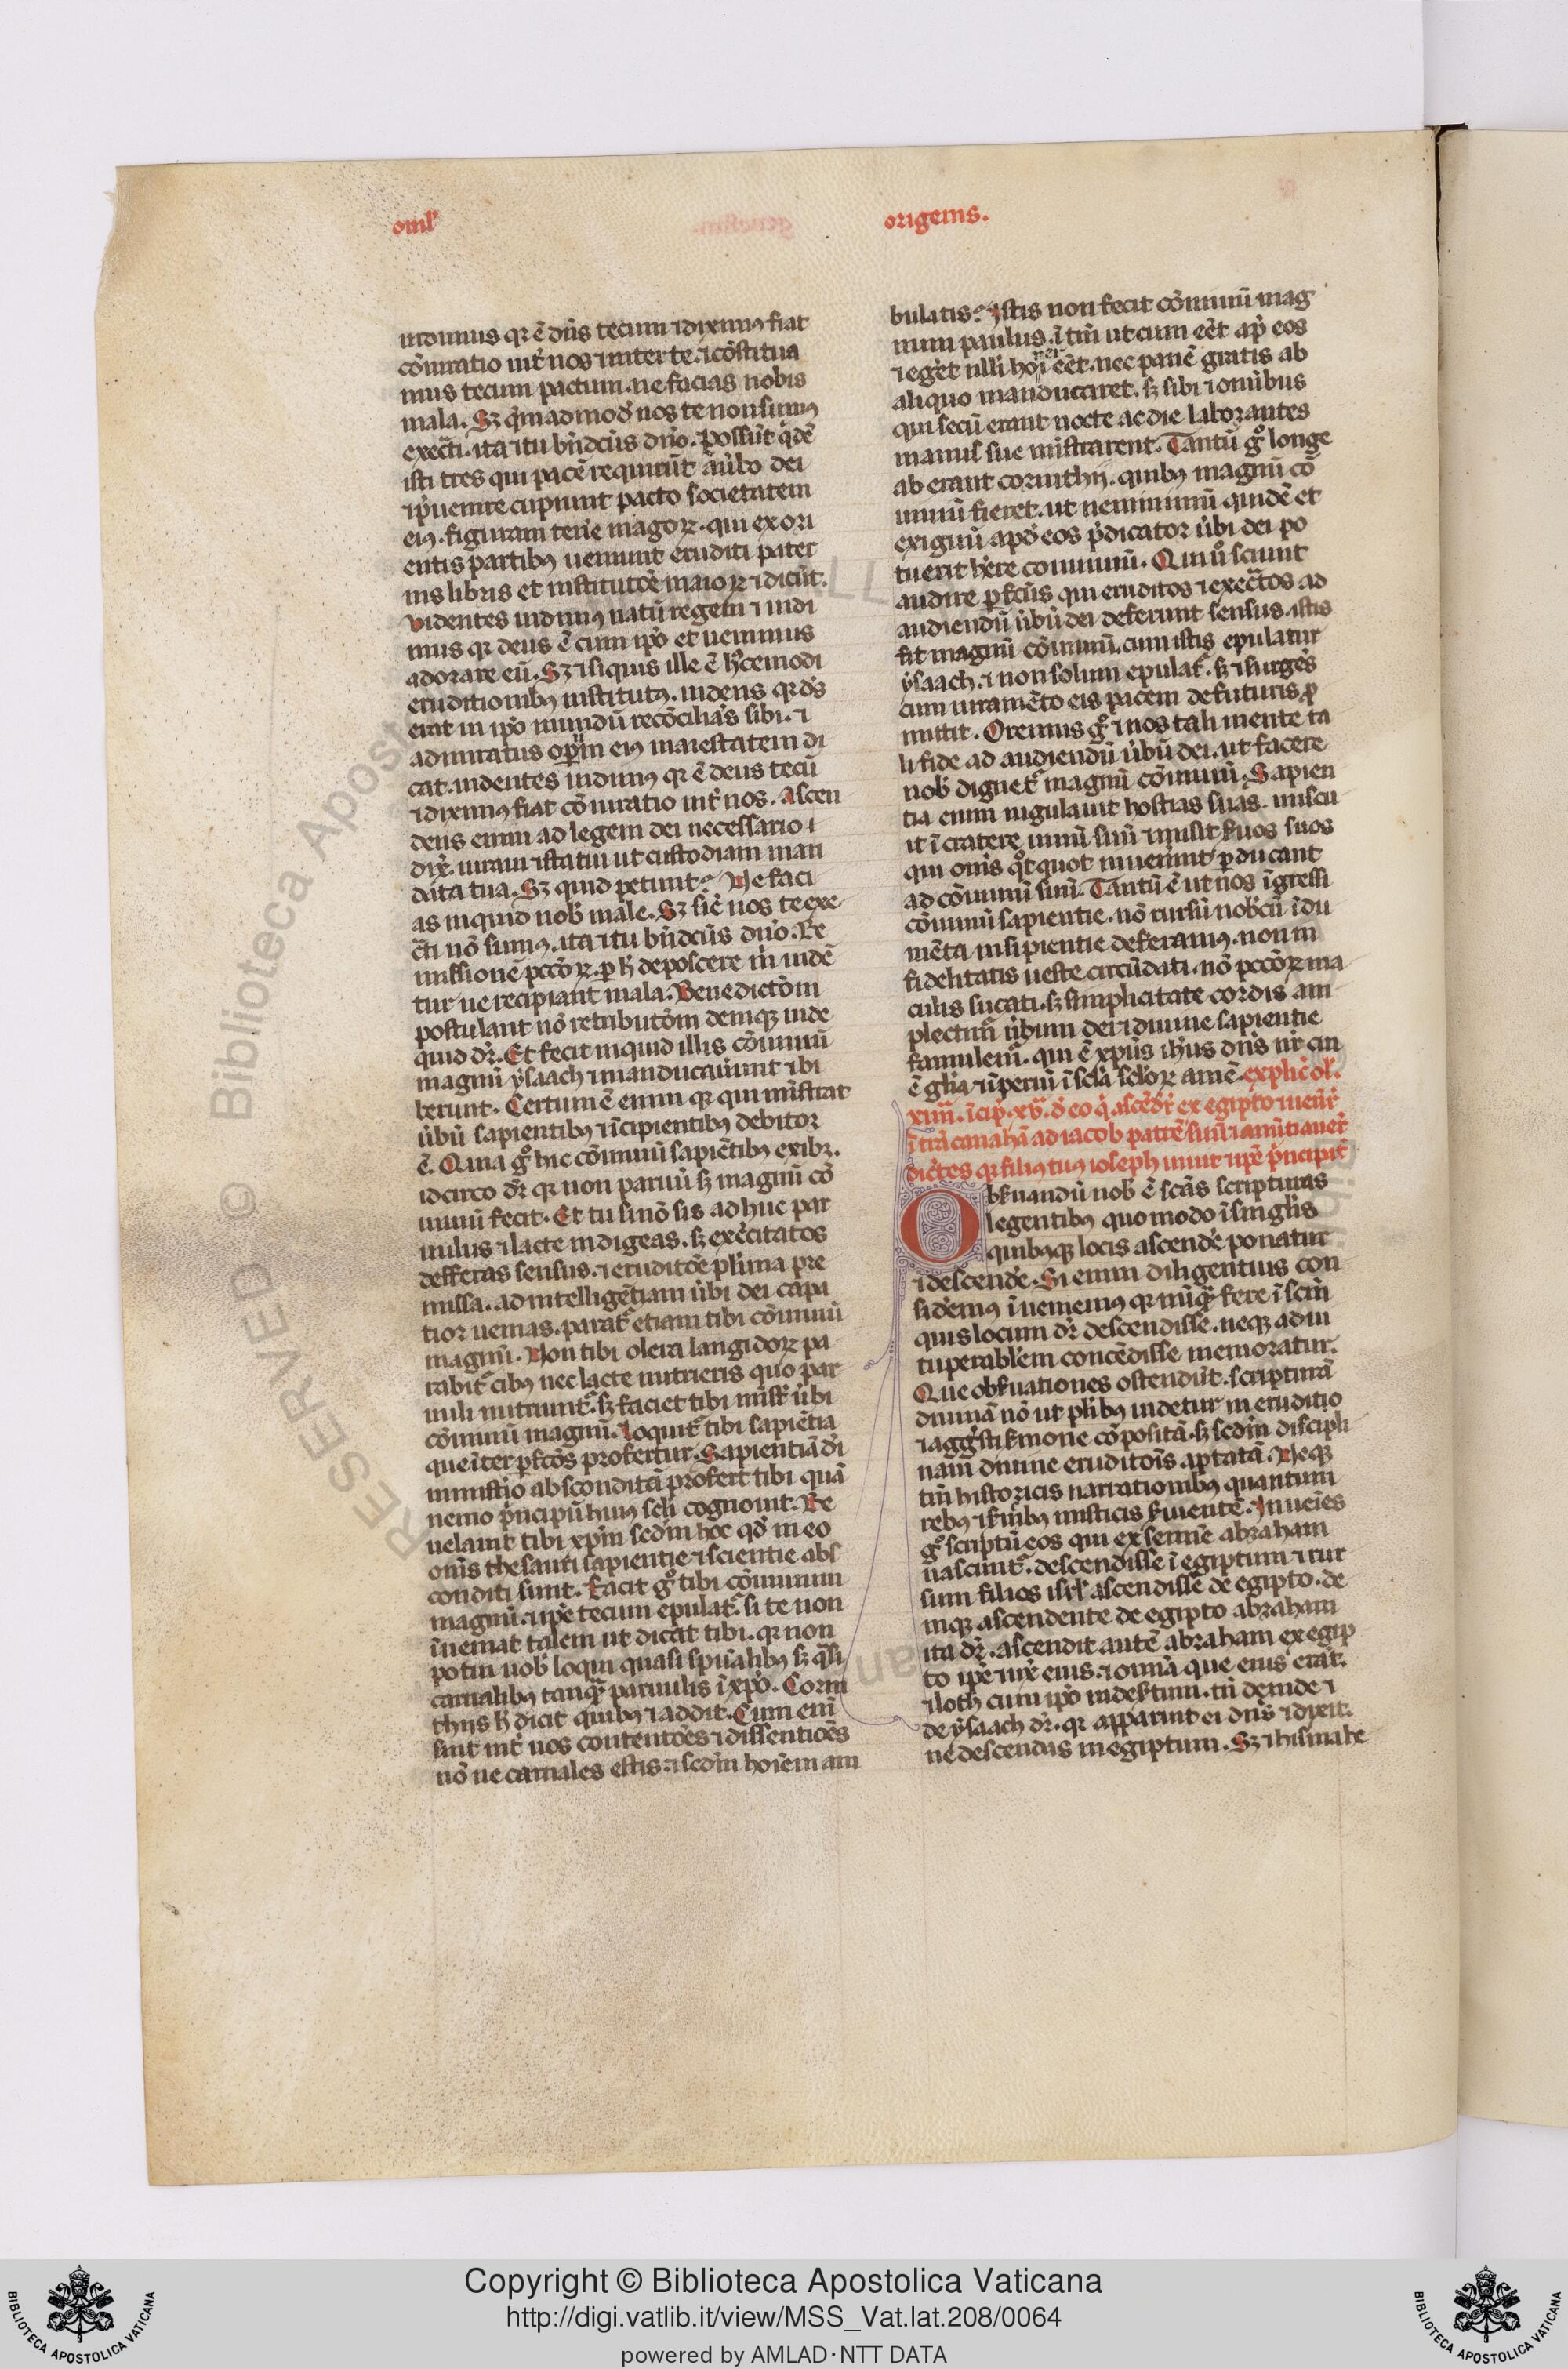 omlʾ
origenis.
uidimus qr ē dn̄s tecum ⁊ diximꝰ fiat
cōiuratio int̾ nos ⁊ inter te. ⁊ cōstitua
mus tecum pactum. ne facias nobis
mala. Sꝫ q̄madmod̄ nos te non sumꝰ
execͣti. ita ⁊ tu bn̄dcūs dn̄o. Possūt qͥdē
isti tres qui pacē requirūt a ūbo dei
⁊ p̄uenire cupiunt pacto societatem
eiꝰ. figuram tene magoꝝ. qui ex ori
entis partibꝰ ueniunt eruditi pater
nis libris et institutōe maioꝝ ⁊ dicūt.
uidentes uidimꝰ natū regem ⁊ uidi
mus qr deus ē cum ip̄o et uenimus
adorare eū. Sꝫ ⁊ si quis ille ē hͥcemodi
eruditionibꝰ institutꝰ. uidens qr ds̄
erat in ip̄o mundū recōciliās sibi. ⁊
admiratus opeꝝ eiꝰ maiestatem di
cat. uidentes uidimꝰ qr ē deus tecū
⁊ diximꝰ fiat cōiuratio int̾ nos. Ascen
dens enim ad legem dei necessario ⁊
dix̄. iuraui ⁊ statui ut custodiam man
data tua. Sꝫ quid petunt? Ne faci
as inquid nob̄ male. Sꝫ sic̄ nos te exe
cͣti nō sumꝰ. ita ⁊ tu bn̄dcūs dn̄o. Re
missionē pccōꝝ. ꝑ h̄ deposcere m̄ uidē
tur ne recipiant mala. Benedictōm
postulant nō retributōm deniqꝫ uide
quid dr̄. Et fecit inquid illis cōiuiuiū
magnū ysaach ⁊ manducauerunt ⁊ bi
berunt. Certum ē enim qr qui ministrat
ūbū sapientibꝰ ⁊ īcipientibꝰ debitor
ē. Quia gͦ hic cōiuiuiū sapiētibꝰ exibꝫ.
idcirco dr̄ qr non paruū sꝫ magnū cō
iuiuiū fecit. Et tu si nō sis ad huc par
uulus ⁊ lacte indigeas. sꝫ exercitatos
defferas sensus. ⁊ eruditōe plͥima pre
missa. ad intelligētiam ūbi dei capa
tior uenias. parat̾ etiam tibi cōiuiuiū
magnū. Non tibi olera langidoꝝ pa
rabit̾ cibꝰ nec lacte nutrieris quo par
uuli nutriunt̾. sꝫ faciet tibi mīst̾ ūbi
cōiuiuiū magnū. Loquit̾ tibi sapiētia
que īter ꝑfctōs profertur. Sapientiā dī
ministīo absconditā profert tibi quā
nemo p̄ncipū huiꝰ sclī cognouit. Re
uelauit tibi xp̄m sedm̄ hoc qd̄ in eo
om̄s thesauri sapientie ⁊ scientie abs
conditi sunt. Facit gͦ tibi cōiuiuium
magnū. ⁊ ip̄e tecum epulat̾. si te non
īueniat talem ut dicat tibi. qr non
potui uob̄ loqui quasi spūalibꝰ sꝫ qͣsi
carnalibꝰ tanqͣ paruulis ī xp̄o. Corin
thijs h̄ dicit quibꝰ ⁊ addit. Cum enī
sint int̾ uos contentōes ⁊ dissentiōes
nō ne carnales estis. ⁊ sedm̄ hoīem am
bulatis? Istis non fecit cōiuiuiū mag
num paulus. ī tm̄ ut cum eēt ap̄ eos
⁊ eget̾ nulli hoī oner eēt. nec panē gratis ab
aliquo manducaret. sꝫ sibi ⁊ omībus
qui secū erant nocte ac die laborantes
manus sue ministrarent. Tantū gͦ longe
ab erant corinthij. quibꝰ magnū cō
iuiuiū fieret. ut ne minimū quidē et
exiguū apd̄ eos p̄dicator ūbi dei po
tuerit hēre conuiuiū. Qui uͦ sciunt
audire ꝑfctūs qui eruditos ⁊ execͣtos ad
audiendū ūbū dei deferunt sensus. istis
fit magnū cōiuiuiū. cum istis epulatur
ysaach. ⁊ non solum epulat̾. sꝫ ⁊ surgēs
cum iuramēto eis pacem de futuris ꝓ
mittit. Oremus gͦ ⁊ nos tali mente ta
li fide ad audiendū ūbū dei. ut facere
nob̄ dignet̾ magnū cōiuiuiū. Sapien
tia enim iugulauit hostias suas. miscu
it ī cratere uinū suū ⁊ misit ẜuos suos
qui om̄s qͦt quot inuenerint ꝑducant
ad cōiuiuiū suū. Tantū ē ut nos īgressi
cōiuiuiū sapientie. nō rursū nob̄cū īdu
mēta insipientie deferamꝰ. non in
fidelitatis ueste circūdati. nō pccōꝝ ma
culis fucati. sꝫ simplicitate cordis am
plectim̄ ūbum dei ⁊ diuine sapientie
famulem̄. qui ē xp̄us ih̄us dn̄s nr̄ cui
ē glīa ⁊ īperiū ī scl̄a scl̄oꝝ amē. explic̄ ol̄.
xiiii. īcip̄. xv. d̄ eo qͥ ascēdr̄ ex egipto uenīt
ī trā canahā ad iacob patrē suū ⁊ anūtiauer̄
dictēs qr filiꝰ tuꝰ ioseph uiuit ⁊ ip̄e p̄ncipat̾
Obẜuandū nob̄ ē scās scripturas
legentibꝰ quomodo ī singlis
quibusqꝫ locis ascendē ponatur
⁊ descendē. Si enim diligentius con
sidemꝰ īueniemꝰ qr nūqͣ fere ī scm̄
quis locum dr̄ descendisse. neqꝫ ad ui
tuperabl̄em concēdisse memoratur.
Que obẜuationes ostendūt. scripturā
diuinā nō ut pl̄ibꝰ uidetur in eruditio
⁊ aggresti ẜmone cōpositā. sꝫ sedm̄ discipli
nam diuine eruditōis aptatā. Neqꝫ
tm̄ historicis narrationibꝰ quantum
rebꝰ ⁊ ẜuibꝰ misticis ẜuientē. Inueīes
gͦ scriptū eos qui ex semine abraham
nascunt̾. descendisse ī egiptum ⁊ rur
sum filios isrl̄ ascendisse de egipto. de
niqꝫ ascendente de egipto abraham
ita dr̄. ascendit autē abraham ex egip
to ip̄e ⁊ ux̄ eius. ⁊ omīa que eius erāt.
⁊ loth cum ip̄o in deẜtum. tū deinde ⁊
de ysaach dr̄. qr apparuit ei dn̄s ⁊ dixit.
ne descendas in egiptum. Sꝫ ⁊ hismahe
RESERVED © Biblioteca Apost
Copyright © Biblioteca Apostolica Vaticana
http://digi.vatlib.it/view/MSS_Vat.lat.208/0064
powered by AMLAD·NTT DATA
BIBLIOTECA APOSTOLICA VATICANA
BIBLIOTECA APOSTOLICA VATICANA